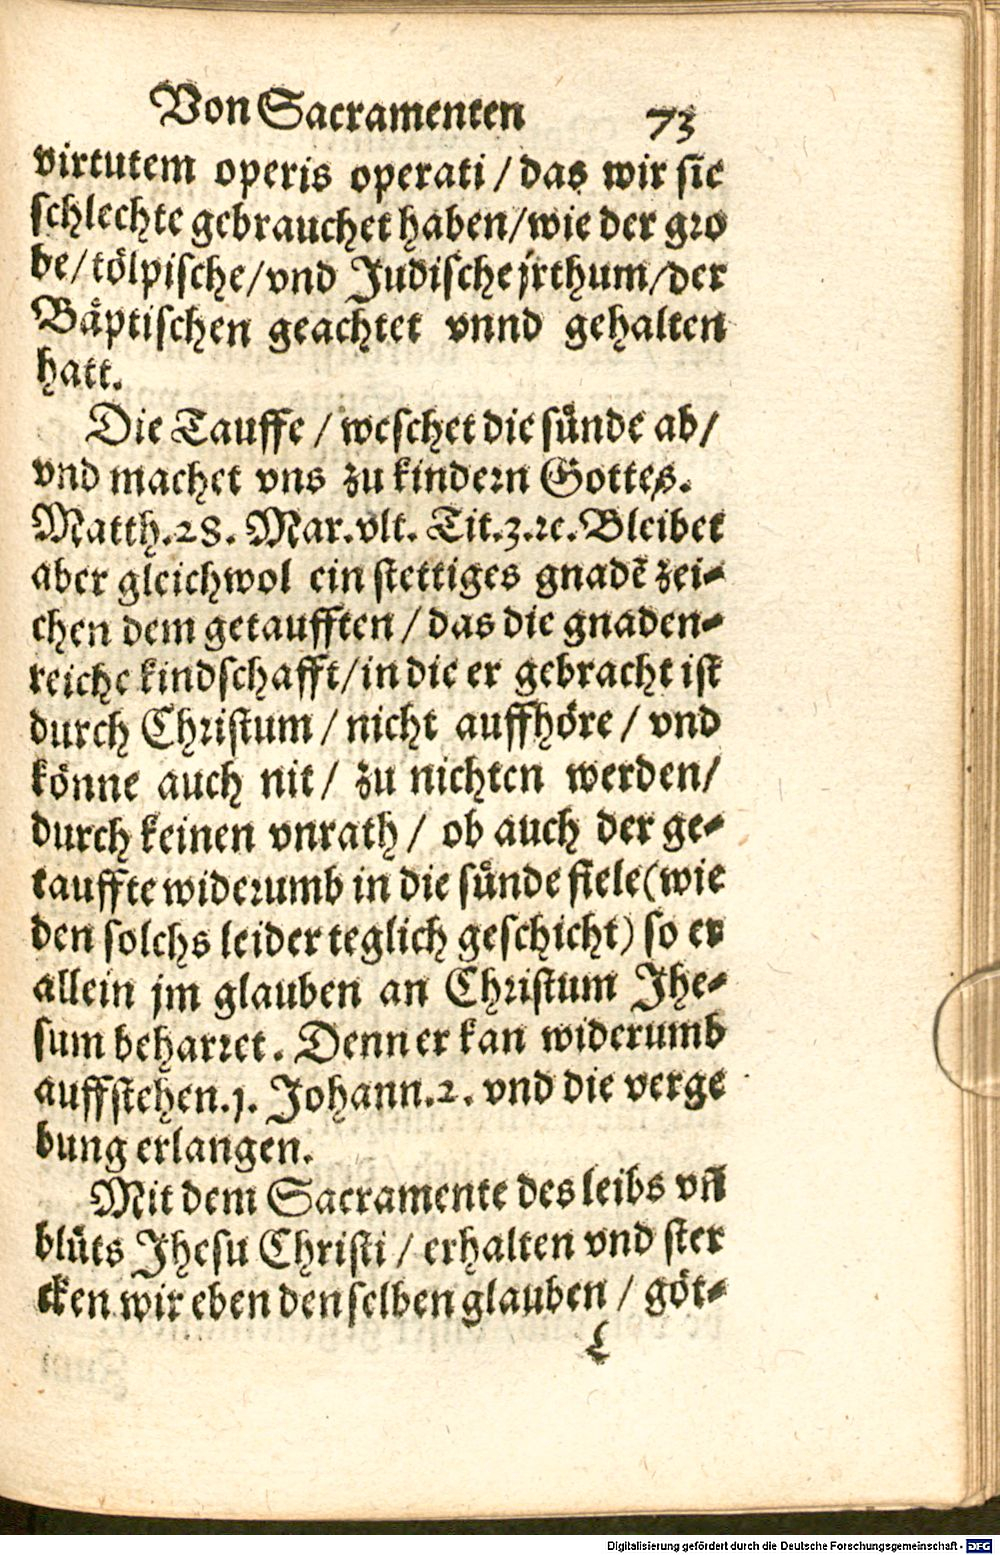 Von Sacramenten 73
virtutem operis operati / das wir sie
schlechte gebrauchet haben / wie der gro
be / tölpische / vnd Judische jrthum / der
Bäptischen geachtet vnnd gehalten
hatt.
Die Tauffe / weschet die sünde ab /
vnd machet vns zu kindern Gottes.
Matth. 28. Mar. vlt. Tit. 3. ꝛc. Bleibet
aber gleichwol ein stettiges gnadẽ zei⸗
chen dem getaufften / das die gnaden⸗
reiche kindschafft / in die er gebracht ist
durch Christum / nicht auffhöre / vnd
könne auch nit / zu nichten werden /
durch keinen vnrath / ob auch der ge⸗
tauffte widerumb in die sünde fiele (wie
den solchs leider teglich geschicht) so er
allein jm glauben an Christum Jhe⸗
sum beharret. Denn er kan widerumb
auffstehen. 1. Johann. 2. vnd die verge
bung erlangen.
Mit dem Sacramente des leibs vñ
blůts Jhesu Christi / erhalten vnd ster
cken wir eben denselben glauben / göt⸗
L
Digitalisierung gefördert durch die Deutsche Forschungsgemeinschaft - DFG